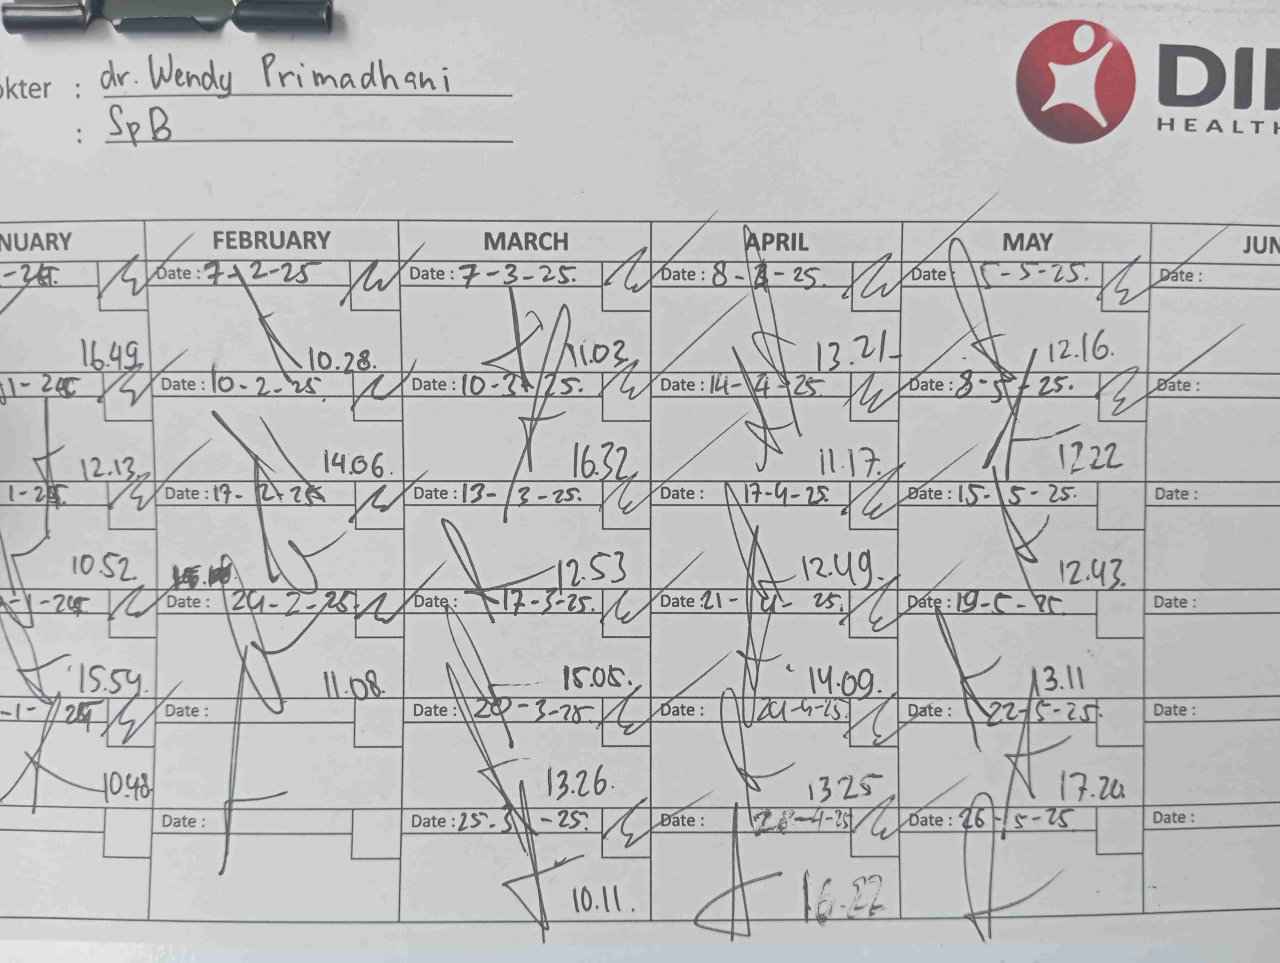 okter : dr. Wendy Primadhani
: SpB
DI
HEALTH
NUARY FEBRUARY MARCH APRIL MAY JUN
Date : 7-2-25 Date : 7-3-25. Date : 8- -25. Date : 5-5-25. Date :
16.49 10.28. 11.03. 13.21 12.16.
Date : 10-2-25. Date : 10-3-25. Date : 14-4-25. Date : 8-5-25. Date :
12.13. 14.06. 16.32 11.17. 12.22
Date : 17-2-25 Date : 13-3-25. Date : 17-4-25. Date : 15-5-25. Date :
10.52 12.53 12.49. 12.43.
Date : 24-2-25. Date : 17-3-25. Date : 21-4-25. Date : 19-5-25. Date :
15.54. 11.08. 15.05. 14.09. 13.11
Date : Date : 20-3-25 Date : 24-4-25. Date : 22-5-25. Date :
10.48 13.26. 13.25 17.24
Date : Date : 25-3-25. Date : 28-4-25 Date : 26-5-25. Date :
10.11. 16.22